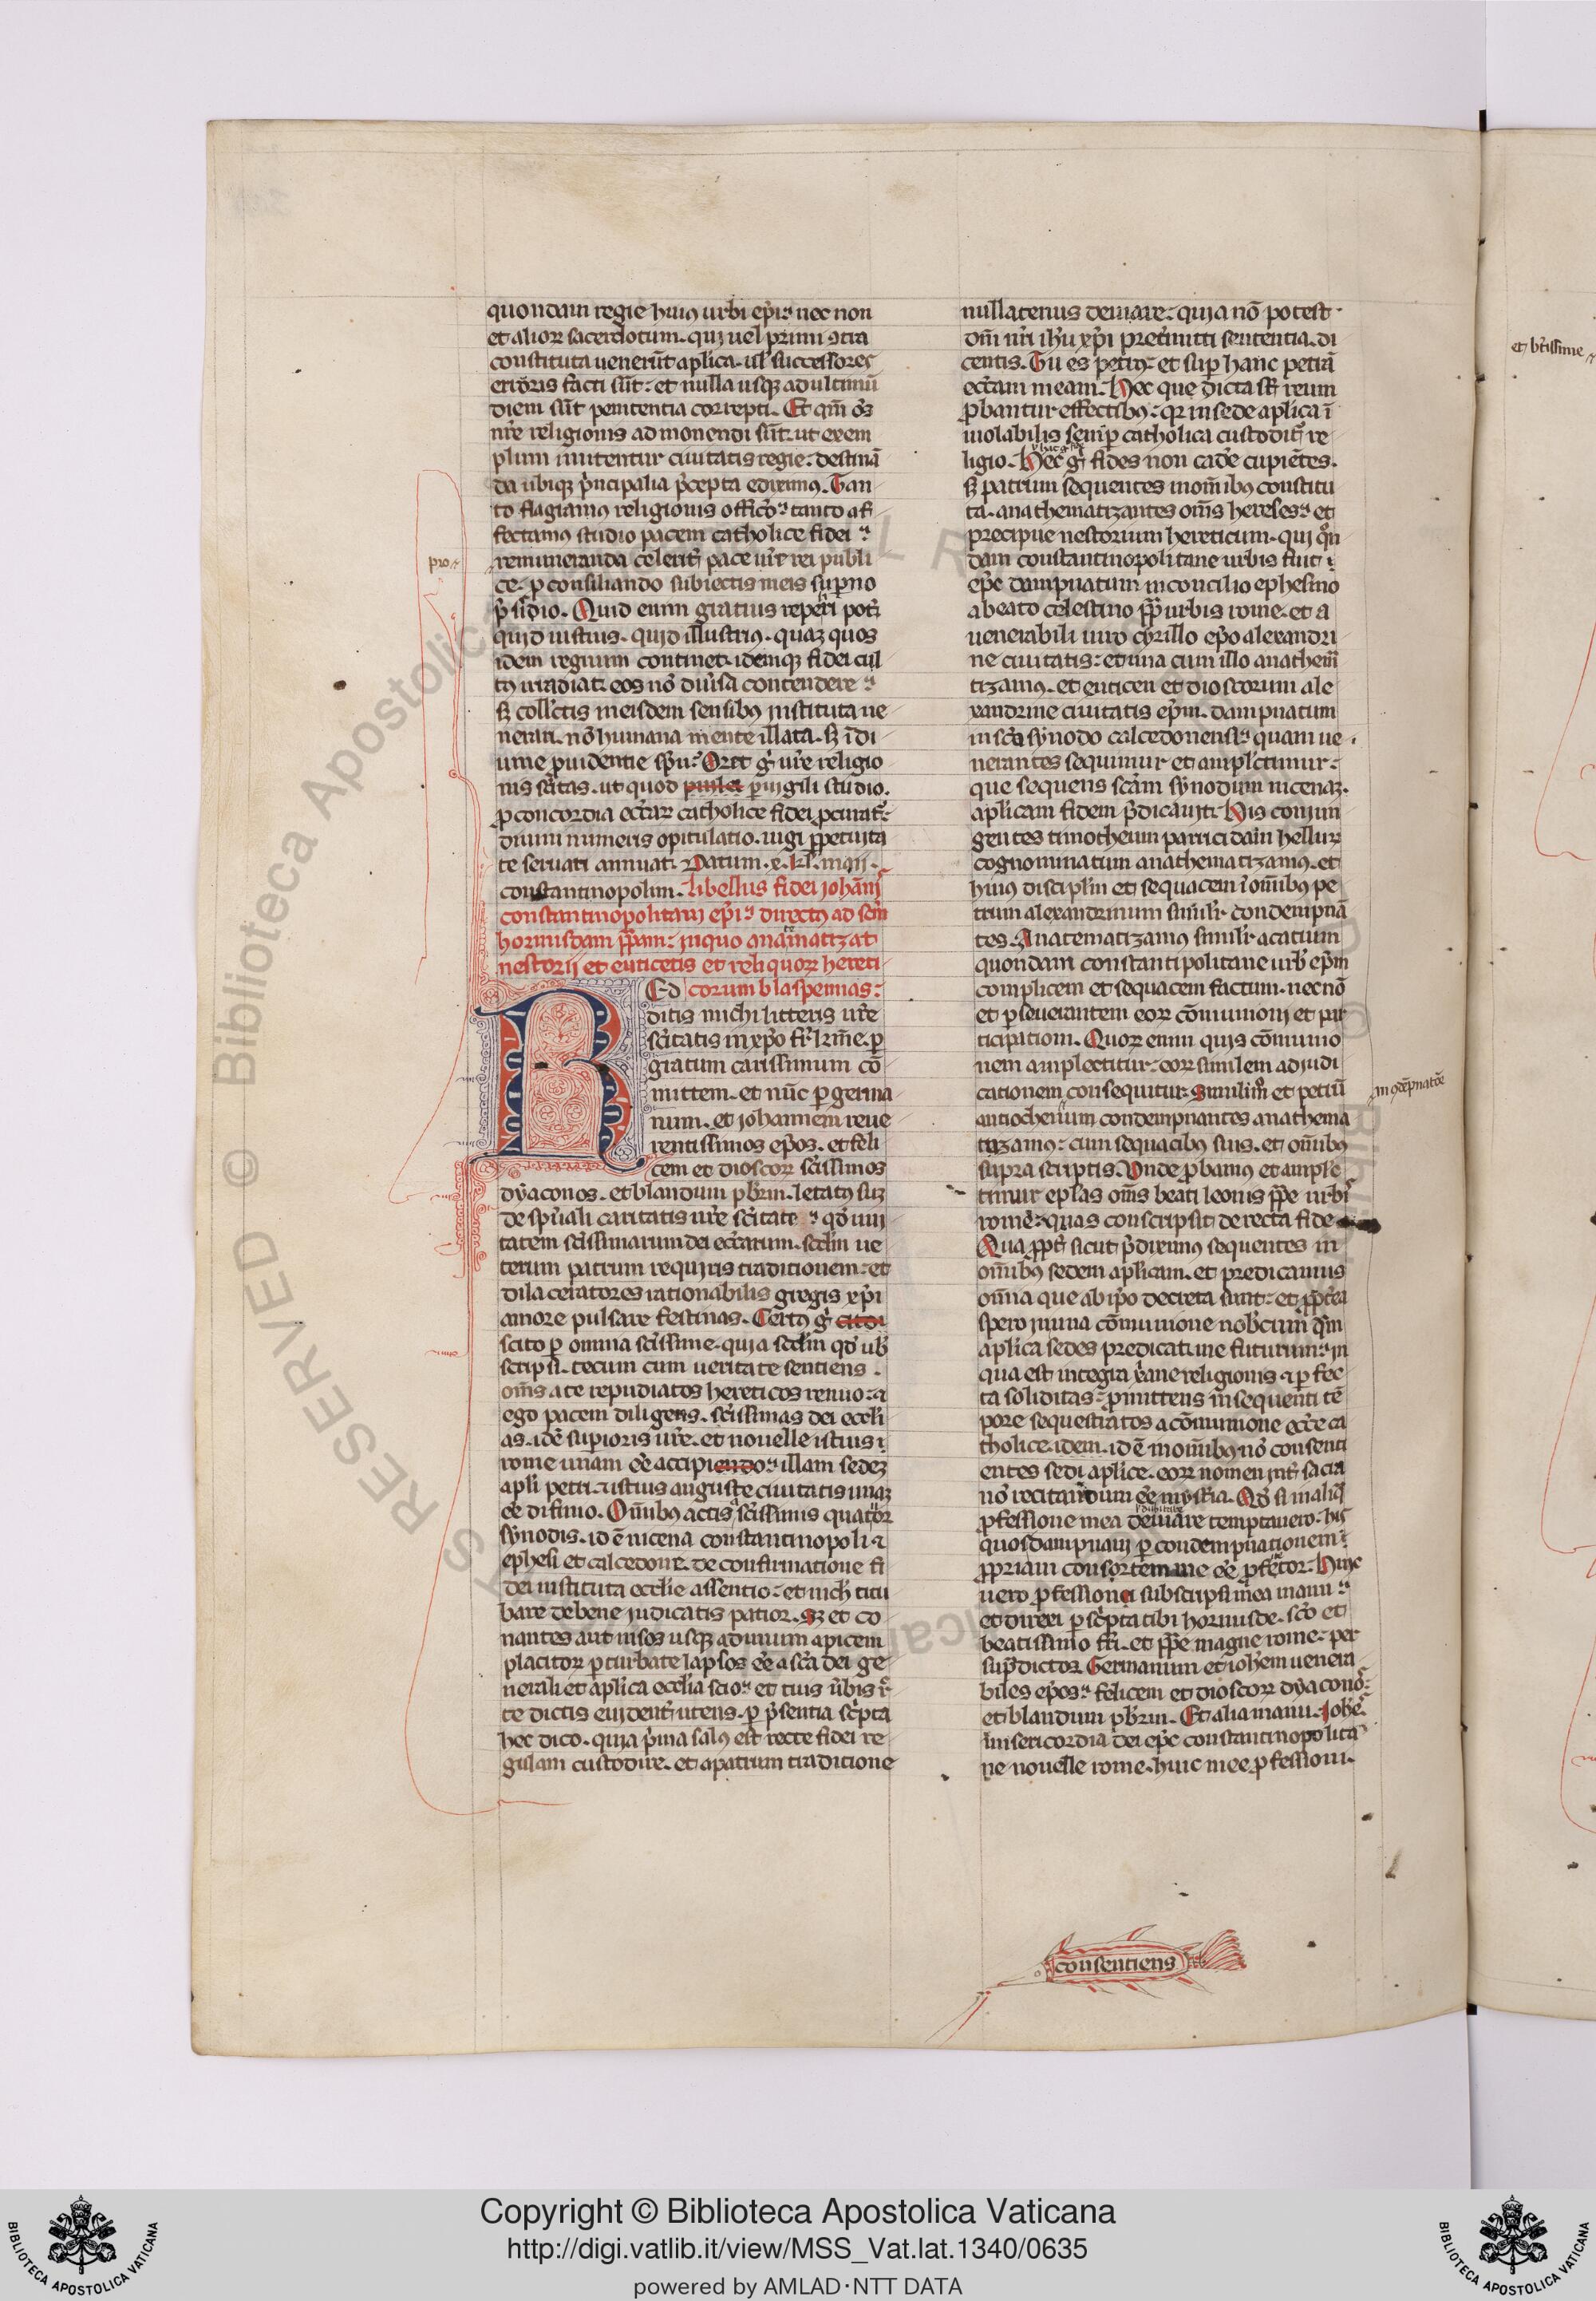 quondam regie huius urbi ep̄i nec non
et alior̄ sacerdotum. qui uel primi ꝯtra
constituta uener̄t aplica. ul̄ successores
erroris facti sūt. et nulla usqꝫ ad ultimū
diem sūt penitentia correpti. Et qm̄ oēs
nr̄e religionis admonendi sūt. ut exem
plum imitentur ciuitatis regie. destinā
da ubiqꝫ pͥncipalia p̄cepta edirimus. Tan
to flagramus religionis officio. tanto af
fectamus studio pacem catholice fidei
remuneranda celerit̄ pace ur̄e rei publi
ce. ꝑ consiliando subiectis meis superno
p̄sidio. Quid enim gratius reperiri pot̄
quid iustius. quid illustriꝰ. quaꝫ quos
idem regnum continet. idemqꝫ fidei cul
tꝰ irradiat. eos nō diuersa contendere
sꝫ coll̄ctis in eisdem sensibꝰ instituta ue
nerari. nō humana mente illata. sꝫ ī di
uine ꝓuidentie spū. Oret g̊ ur̄e religio
nis sc̄itas. ut quod ꝑuigili studio.
ꝓ concordia ecc̄ar̄ catholice fidei ꝓcurat̄
diuini numeris opitulatio. iugi ꝑpetuita
te seruari annuat. Datum. x. kl̄. maij.
constantinopolim. Libellus fidei johānis
constantinopolitani ep̄i directꝰ ad sc̄m
hormisdam pp̄am. in quo anathematizat
nestorij et euticetis et reliquor̄ hereti
corum blaspemias.
Redditis michi litteris ur̄e
sc̄itatis in xp̄o fr̄ kr̄me. ꝑ
gratum carissimum cō
mittem. et nūc ꝑ germa
num. et johannem reue
rentissimos ep̄os. et feli
cem et dioscor̄ sc̄issimos
dyaconos. et blandum pb̄rm. letatꝰ suꝫ
de spūali caritatis ur̄e sc̄itate. qd̄ uni
tatem sc̄issimarum dei ecc̄arum. scd̄m ue
terum patrum requiris traditionem. et
dilaceratores rationabilis gregis xp̄i
amore pulsare festinas. Certꝰ g̊
scito ꝑ omnia sc̄issime. quia scd̄m qd̄ ub̄
scripsi. tecum cum ueritate sentiens.
om̄s a te repudiatos hereticos renuo. ⁊
ego pacem diligens. sc̄issimas dei eccl̄i
as. id ē superioris ur̄e. et nouelle istius
rome unam eē accipio. illam sedeꝫ
apl̄i petri. ⁊ istius auguste ciuitatis unaꝫ
eē difinio. Om̄ibꝰ actis sc̄issimis quatuor
synodis. id ē nicena constantinopoli ⁊
ephesi et calcedone. de confirmatione fi
dei instituta eccl̄ie assentio. et nich̄ titu
bare de bene judicatis patior. sꝫ et co
nantes aut nisos usqꝫ ad unum apicem
placitor̄ ꝑturbare lapsos eē a sc̄a dei ge
nerali et aplica eccl̄ia scio. et tuis ūbis r̄
te dictis euident̄ utens. ꝑ p̄sentia sc̄pta
hec dico. quia p̄ma salꝰ est recte fidei re
gulam custodire. et a patrum traditione
nullatenus deuiare. quia nō potest
dn̄i nr̄i ih̄u xp̄i pret̄mitti sententia. di
centis. Tu es petrꝰ. et suꝑ hanc petrā
ecc̄am meam. Hec que dicta sūt rerum
ꝓbantur effectibꝰ. qꝛ in sede aplica ī
uiolabilis semꝑ catholica custodit̄ re
ligio. Hec g̊ fides non cad̄e cupiētes.
sꝫ patrum sequentes in om̄ibus constitu
ta. anathematizantes om̄s hereses. et
precipue nestorium hereticum. qui q̊n
dam constantinopolitane urbis fuit
ep̄c dampnatum in concilio ephesino
a beato celestino pp̄ urbis rome. et a
uenerabili uiro cyrillo ep̄o alexandri
ne ciuitatis. et una cum illo anathem̄
tizamꝰ. et euticen et dioscorum ale
xandrine ciuitatis ep̄m. dampnatum
in sc̄a synodo calcedonensi. quam ue
nerantes sequimur et ampl̄ctimur.
que sequens sc̄am synodum nicenaꝫ.
aplicam fidem p̄dicauit. His coniun
gentes timotheum parricidam hellur̄
cognominatum anathematizamꝰ. et
huius discipl̄m et sequacem ī om̄ibus pe
trum alexandrinum simil̄r condempnā
tes. Anatematizamꝰ simil̄r acatium
quondam constantipolitane urb̄ ep̄m
complicem et sequacem factum. nec nō
et ꝑseuerantem eor̄ cōmunioni et par
ticipationi. Quor̄ enim quis cōmunio
nem amplectitur. eor̄ similem adiudi
cationem consequitur. Similit̄ et petrū
antiochenum condempnantes anathema
tizamꝰ. cum sequacibꝰ suis. et om̄ibus
supra scriptis. Unde ꝓbamus et amplec
timur epl̄as om̄s beati leonis pp̄e urbī
rome. quas conscripsit de recta fide
Qua ꝓpt̄ sicut p̄diximus sequentes in
om̄ibus sedem aplicam. et predicamus
om̄ia que ab ip̄o decreta sunt. et ꝓpt̄ea
spero in una cōmunione nob̄cum q̄m
aplica sedes predicat. me futurum. in
qua est integra xr̄iane religionis. ⁊ ꝑfec
ta soliditas. ꝓmittens in sequenti tē
pore sequestratos a cōmunione ecc̄e ca
tholice. idem. id ē in om̄ibus nō consenti
entes sedi aplice. eor̄ nomen int̄ sacra
nō recitandum eē mysteria. Qd̄ si in aliq̊
ꝓfessione mea deuiare temptauero. his
quos dampnaui ꝑ condempnationem
ꝓpriam consortem me eē ꝓfiteor. Huic
uero ꝓfessioni subscripsi mea manu
et direxi ꝑ sc̄pta tibi hormisde. sc̄o et
beatissimo fr̄i. et pp̄e magne rome. per
sup̄dictor̄ Germanum et ioh̄em uenera
biles ep̄os. felicem et dioscor̄ dyaconos.
et blandum pb̄rm. Et alia manu. Joh̄es
misericordia dei ep̄c constantinopolita
ne nouelle rome. huic mee ꝓfessioni.
consentiens
pro
in ꝯdēpnatōe
et btīssime
Copyright © Biblioteca Apostolica Vaticana
http://digi.vatlib.it/view/MSS_Vat.lat.1340/0635
powered by AMLAD·NTT DATA
BIBLIOTECA APOSTOLICA VATICANA
BIBLIOTECA APOSTOLICA VATICANA